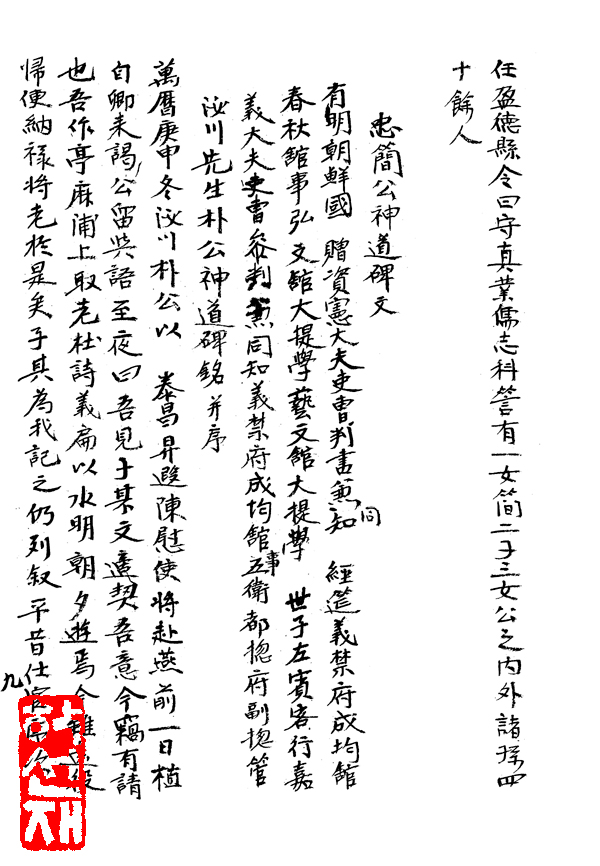 任盈德縣令曰守真業儒志科筮有一女簡二子三女公之内外諸孫四
十餘人
忠簡公神道碑文
有明朝鮮國 贈資憲大夫吏曹判書兼知 經筵義禁府成均館
同
春秋館事弘文館大提學藝文館大提學 世子左賓客行嘉
義大夫吏曹參判兼同知義禁府成均館事五衛都摠府副摠管
汝川先生朴公神道碑銘并序
萬曆庚申冬汝川朴公以 泰昌昇遐陳慰使將赴燕前一日植
自卿来謁公留與語至夜曰吾見子某文適契吾意今竊有請
也吾作亭麻浦上取老杜詩義扁以水明朝夕遊焉今雖
歸便納祿將老於是矣子其為我記之仍列叙平昔仕官
九
한재